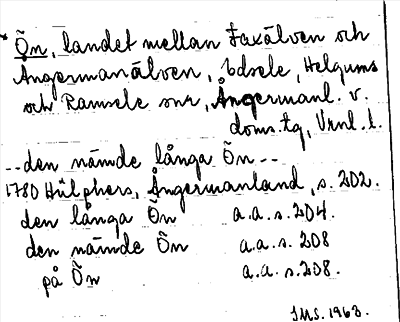 Õn, landet mellan Faxälven och
Ångermanälven, Edsele, Helgums
och Ramsele snr, Ångermanl. v.
doms.tg, Vrnl. l.
--den nämde långa Õn--
1780 Hülphers, Ångermanland, s. 202.
den långa Õn a.a.s. 204.
den nämde Õn a.a.s. 208
på Õn a.a.s. 208.
IMS. 1963.